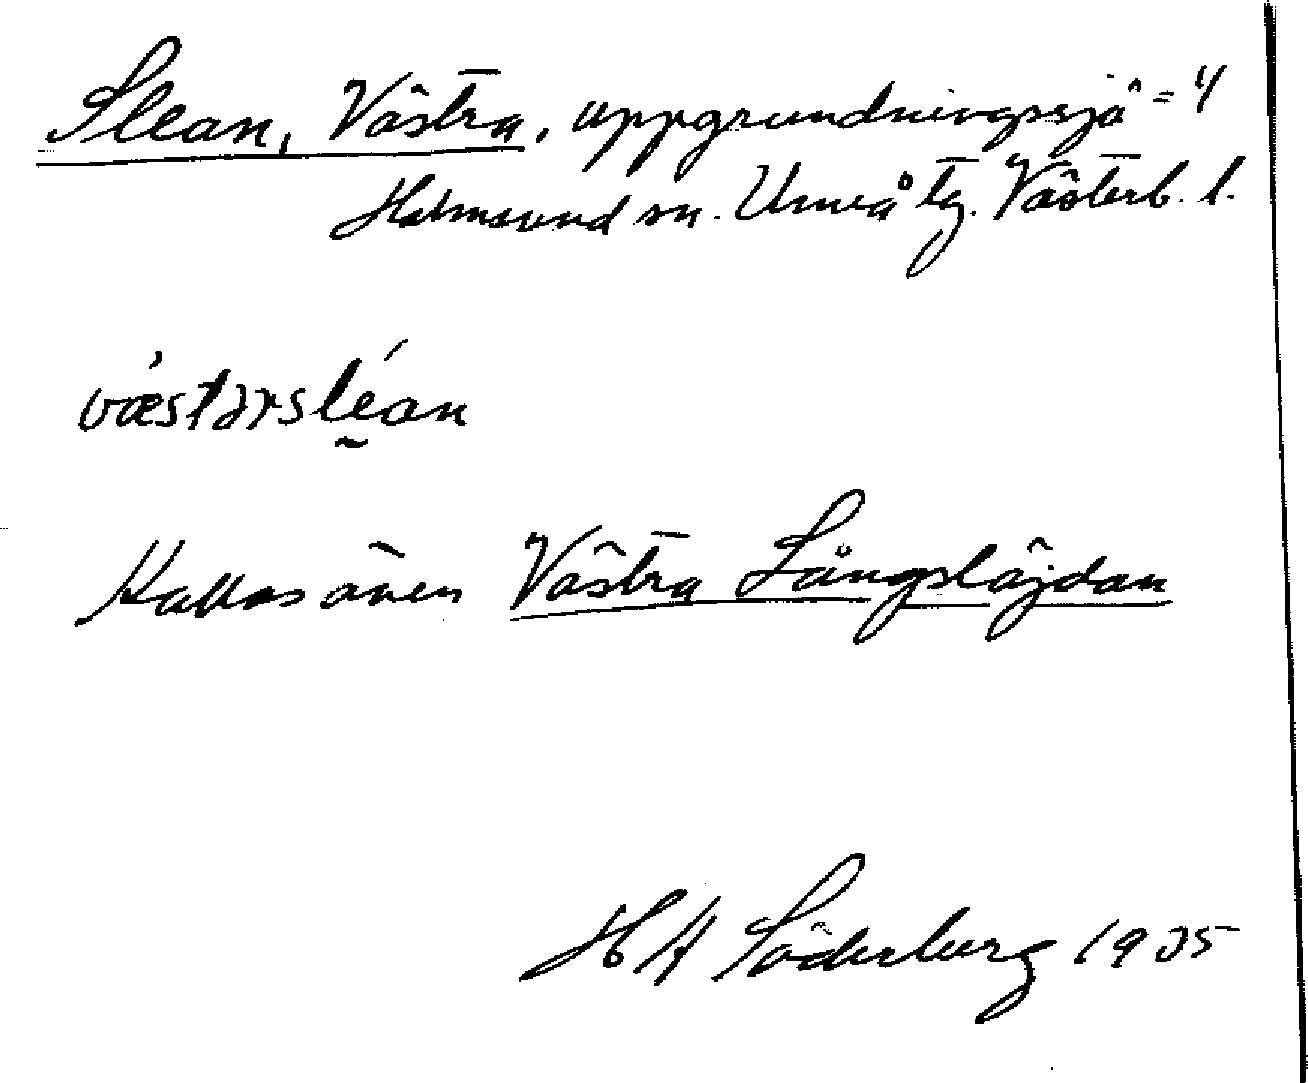 Slean, Västra, uppgrundningssjö = 4
Holmsund sn. Umeå tg. Västerb. l.
væstərslé̬an
Kallas även Västra Långslöjdan
H A Söderberg 1935